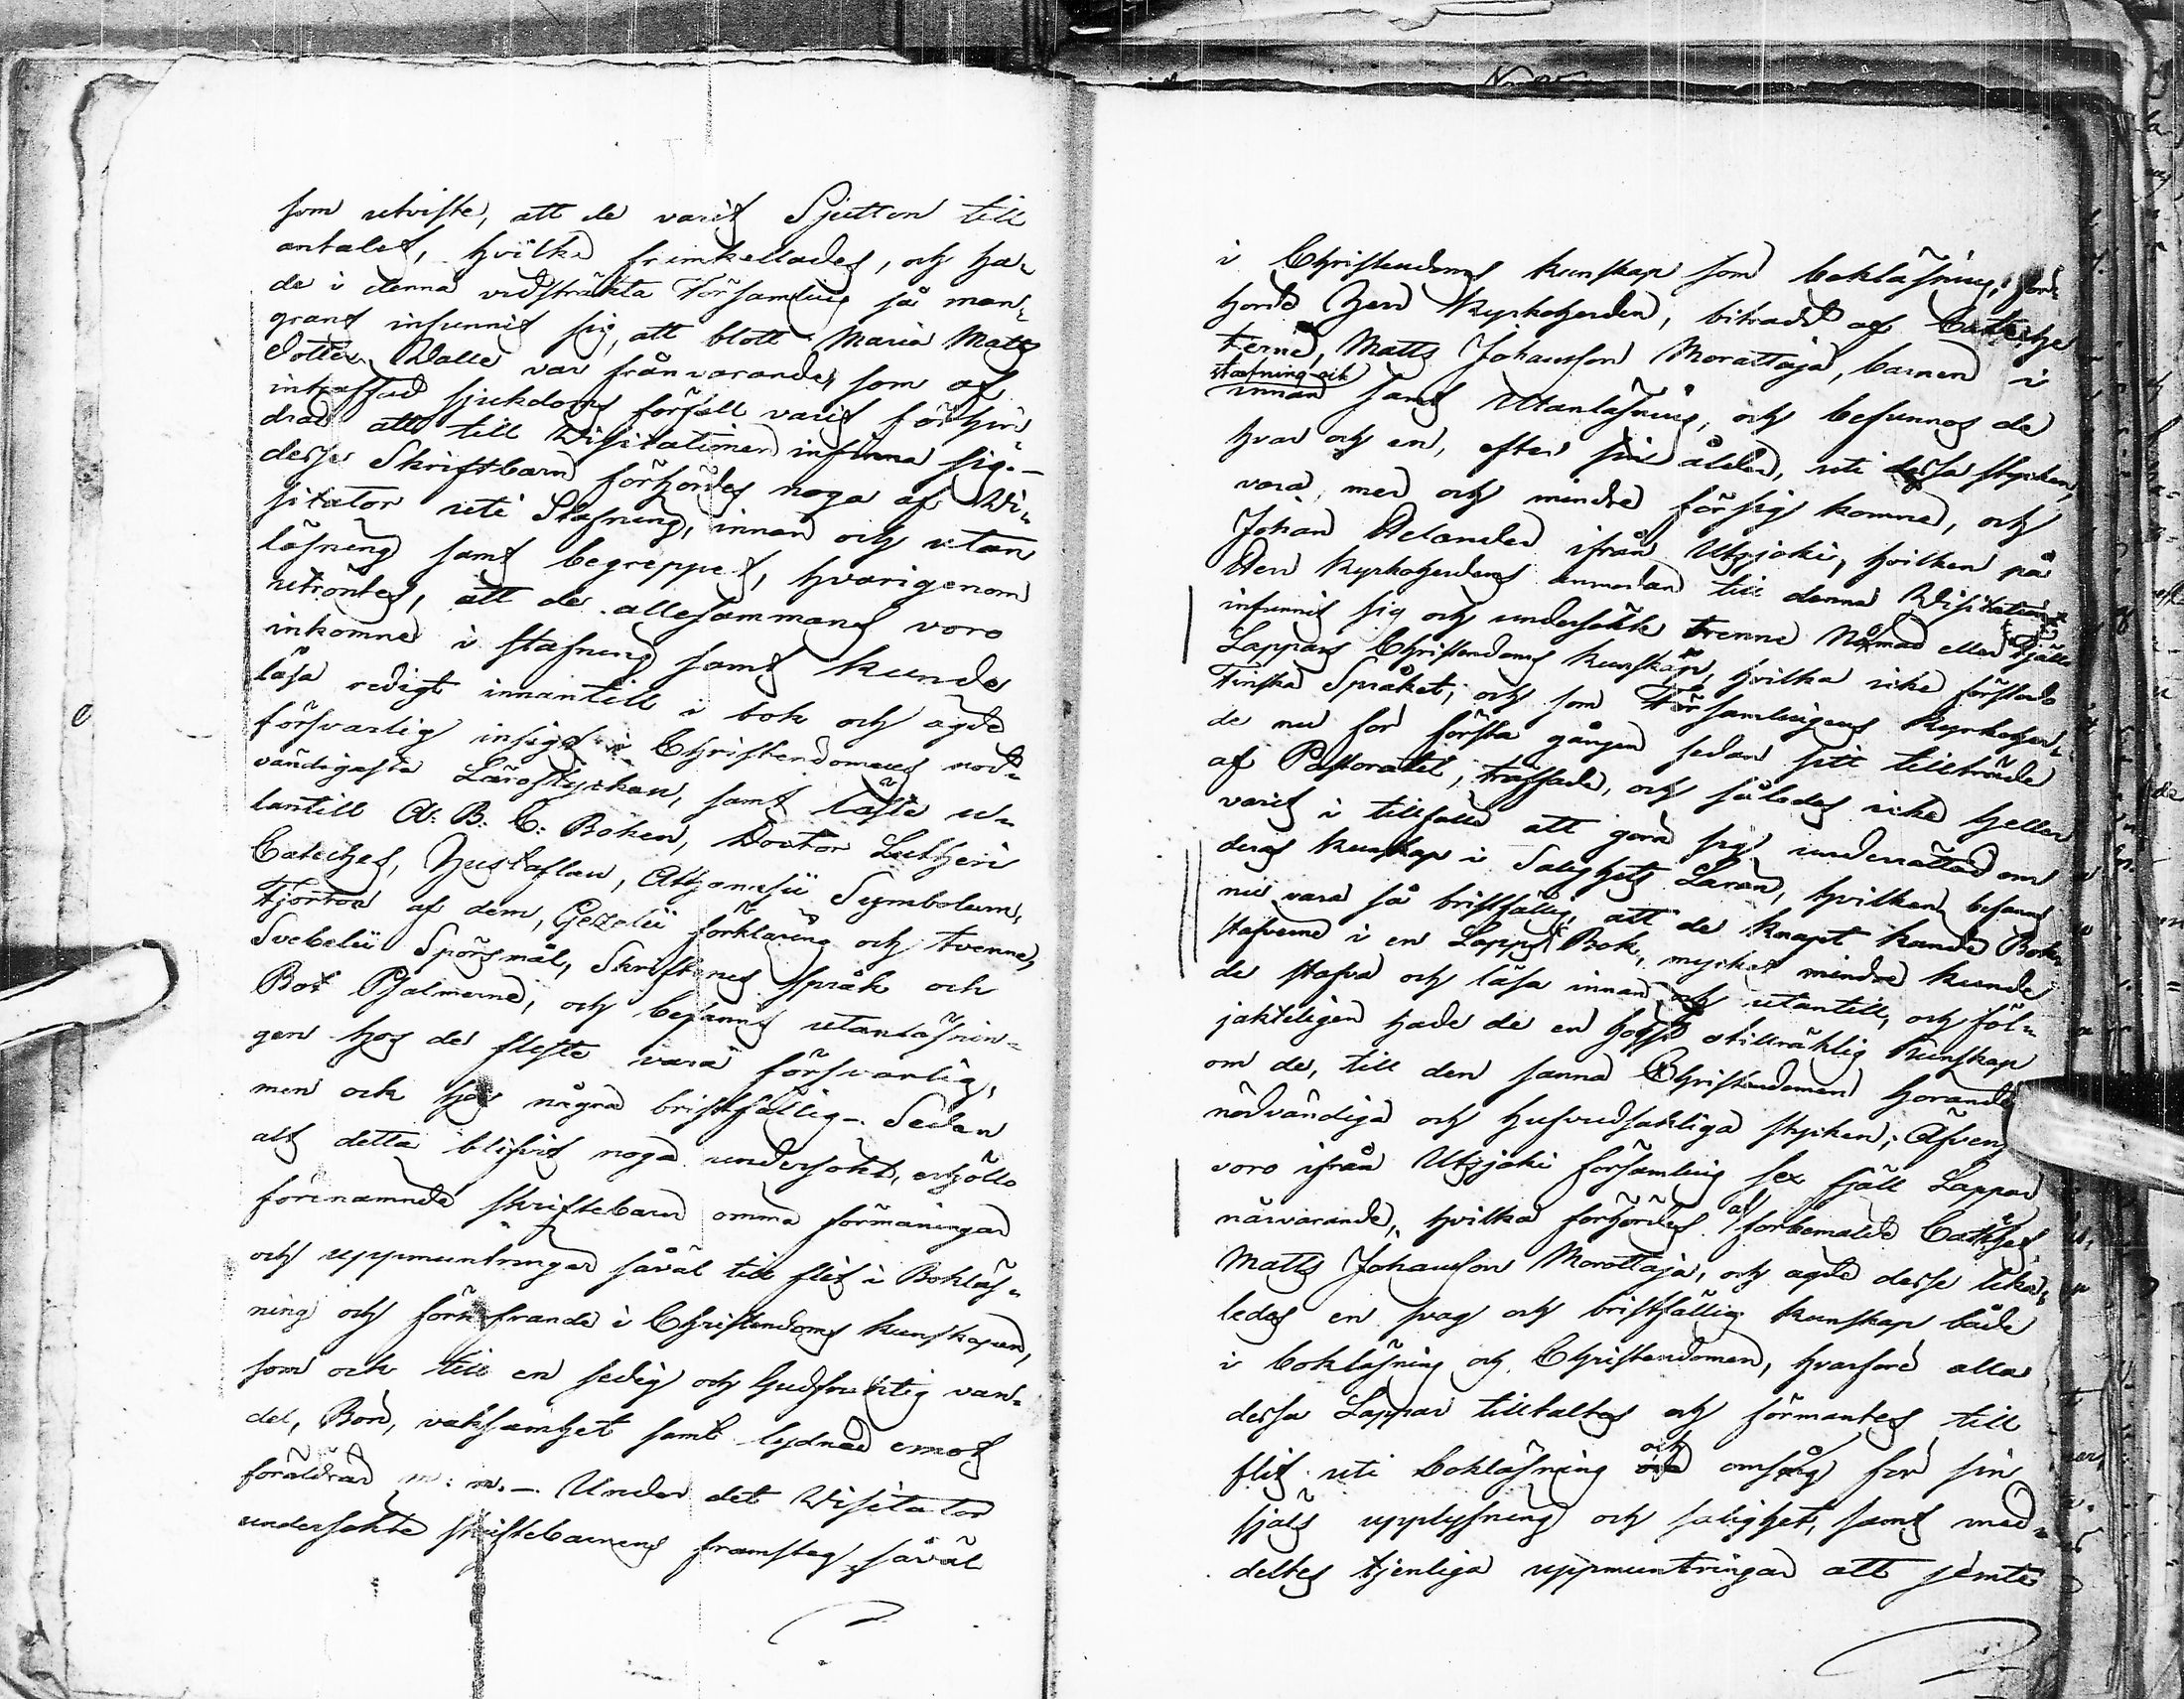 som utviste, att de varit Sjutton till
antalet, hvilka framkallades, och ha-
de i denna vidsträkta Församling så man-
grant infunnit sig, att blott Maria Matts
dotter Walle var frånvarande, som af
inträffad sjukdoms förfall varit förhin-
drad att till Visitationen infinna sig. –
desse Skriftbarn förhördes noga af Wi-
sitator uti Stafning, innan och utan
läsning samt begreppet, hvarigenom
utröntes, att de allesammans voro
inkomne i stafning samt kunde
läsa redigt innantill i bok och ägde
försvarlig insigt i Christendomens nöd-
vändigaste Lärostycken, samt läste u-
tantill A: B: C: Boken, Doctor Lutheri
Cateches, Hustaflan, Athanasii Symbolum,
Fjorton af dem, Gezelii förklaring och tvenne,
Svebelii Spörsmål, Skriftenes språk och
Bot Psalmerne, och befanns utanläsnin-
gen hos de fleste vara försvarlig,
men ock hos några bristfällig – Sedan
alt detta blifvit noga undersökt, erhöllo
förenämnde skriftebarn ömma förmaningar
och uppmuntringar såväl till flit i Bokläs-
ning och förkofrande i Christendoms kunskapen,
som ock till en sedig och Gudfruktig van-
del, Bön, vaksamhet samt lydnad emot
föräldrar m: m. – Under det Visitator
undersökte skriftebarnens framsteg såväl
i Christendoms kunskap som bokläsning, för-
hörde Herr Kyrkoherden, biträdd af Cateche
terne, Matts Johansson Morottaja, barnen i
stafning och
innan samt Utanläsning, och befunnos de
hvar och en, efter sin ålder, uti dessa stycken,
vara mer och mindre försig komne, och
Johan Helander ifrån Utsjoki, hvilken på
Herr Kyrkoherdens anmodan till denna Visitation
infunnit sig och undersökte trenne Nomad eller Fjäll
Lappars Christendoms kunskap, hvilka icke förstodo
Finska Språket, och som Församlingens Kyrkoher-
de nu för första gången sedan sitt tillträde
af Pastoratet, träffade, och således icke heller
varit i tillfälle att göra sig underrättad om
deras kunskap i Salighets Läran, hvilken befans
nu vara så bristfällig, att de knapt kände Bok-
stafverne i en Lappsk Bok, mycket mindre kunde
de stafva och läsa innan och utantill, och föl-
jakteligen hade de en högst otillräklig kunskap
om de, till den sanna Christendomen hörande
nödvändiga och hufvudsakliga stycken; Äfven
voro ifrån Utsjoki församling sex fjäll Lappar
närvarande, hvilka förhördes af förbemälde Catechet
Matts Johansson Morottaja, och ägde desse lika-
ledes en svag och bristfällig kunskap både
i bokläsning och Christendomen, hvarföre alla
dessa Lappar tilltaltes och förmantes till
flit uti bokläsning och omsorg för sin
själs upplysning och salighet, samt med-
deltes tjenliga uppmuntringar att jemte